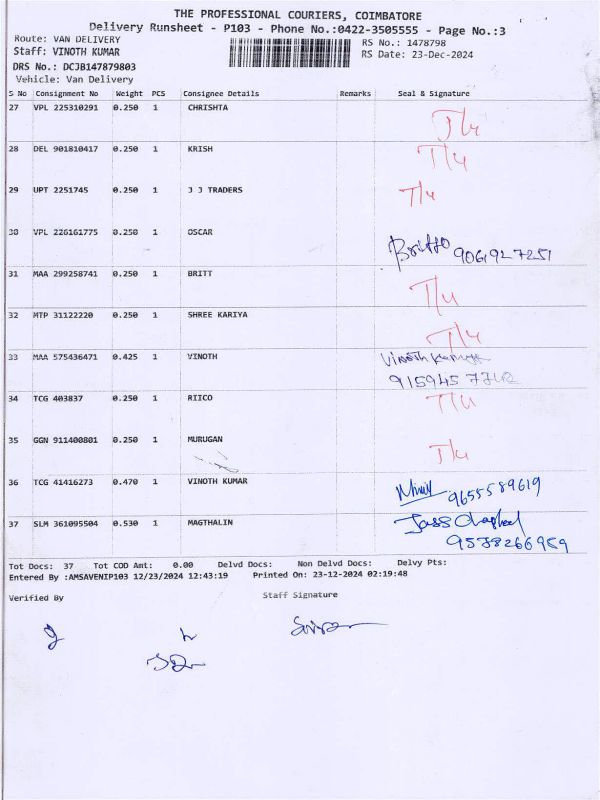 THE PROFESSIONAL COURIERS, COIMBATORE
Delivery Runsheet - P103 - Phone No.:0422-3505555 - Page No.:3
Route: VAN DELIVERY RS No.: 1478798
Staff: VINOTH KUMAR RS Date: 23-Dec-2024
DRS No.: DCJB147879803
Vehicle: Van Delivery
S No Consignment No Weight PCS Consignee Details Remarks Seal & Signature
27 VPL 225310291 0.250 1 CHRISHTA T/4
28 DEL 901810417 0.250 1 KRISH T/4
29 UPT 2251745 0.250 1 J J TRADERS T/4
30 VPL 226161775 0.250 1 OSCAR Britto 9061927251
31 MAA 299258741 0.250 1 BRITT T/4
32 MTP 31122220 0.250 1 SHREE KARIYA T/4
33 MAA 575436471 0.425 1 VINOTH Vinoth Kumar
915945
34 TCG 403837 0.250 1 RIICO T/4
35 GGN 911400801 0.250 1 MURUGAN T/4
36 TCG 41416273 0.470 1 VINOTH KUMAR 9655589619
37 SLM 361095504 0.530 1 MAGTHALIN
9538266959
Tot Docs: 37 Tot COD Amt: 0.00 Delvd Docs: Non Delvd Docs: Delvy Pts:
Entered By :AMSAVENIP103 12/23/2024 12:43:19 Printed On: 23-12-2024 02:19:48
Verified By Staff Signature